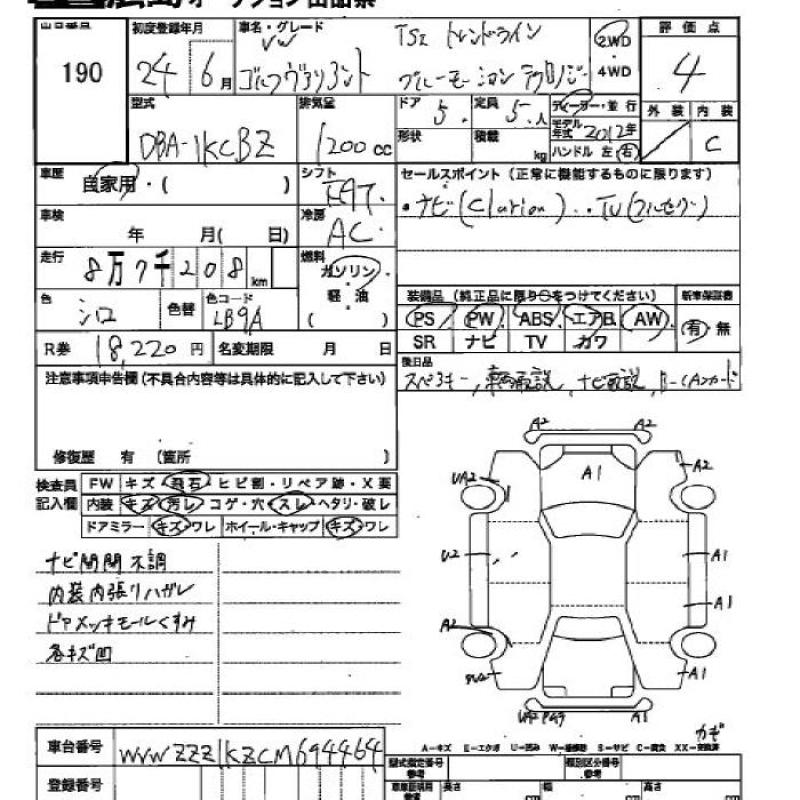 広島オークション出品票
出品番号
190
初度登録年月
24 6月
車名・グレード
VW
ゴルフヴァリアント
TSI トレンドライン
ブルーモーション テクノロジー
2WD
4WD
評価点
4
外装 内装
C
型式
DBA-1KCBZ
排気量
1200cc
ドア 5.
定員 5.人
形状
積載 kg
ディーラー・並行
モデル年式 2012年
ハンドル 左 右
車歴
自家用・( )
シフト
FAT.
車検
年 月( 日)
冷房
AC.
走行
8万7千208km
燃料
ガソリン
・
軽・油
( )
色
シロ
色替
色コード
LB9A
R券 18,220円
名変期限 月 日
セールスポイント (正常に機能するものに限ります)
・ナビ(Clarion)..TV(フルセグ)
装備品 (純正品に限り○をつけてください)
新車保証書
PS PW ABS エアB AW
SR ナビ TV カワ
有・無
後日品
スペアキー, 車両取説, ナビ取説, B-CASカード
注意事項申告欄(不具合内容等は具体的に記入して下さい)
修復歴 有 (箇所 )
検査員
記入欄
FW キズ・飛石・ヒビ割・リペア跡・X要
内装 キズ・汚レ・コゲ・穴・スレ・ヘタリ・破レ
ドアミラー キズ・ワレ ホイール・キャップ キズ・ワレ
ナビ開閉不調
内装内張りハガレ
ドアメッキモールくすみ
各キズ凹
A2 A2
UA2 A1 A2
U2 A1
A1
A2
A1
A1
カギ
A-キズ E-エクボ U-凹み W-補修跡 S-サビ C-腐食 XX-交換済
車台番号
WVWZZZ1KZCM694464
登録番号
型式指定番号
参考
類別区分番号
参考
長さ cm
幅 cm
高さ cm